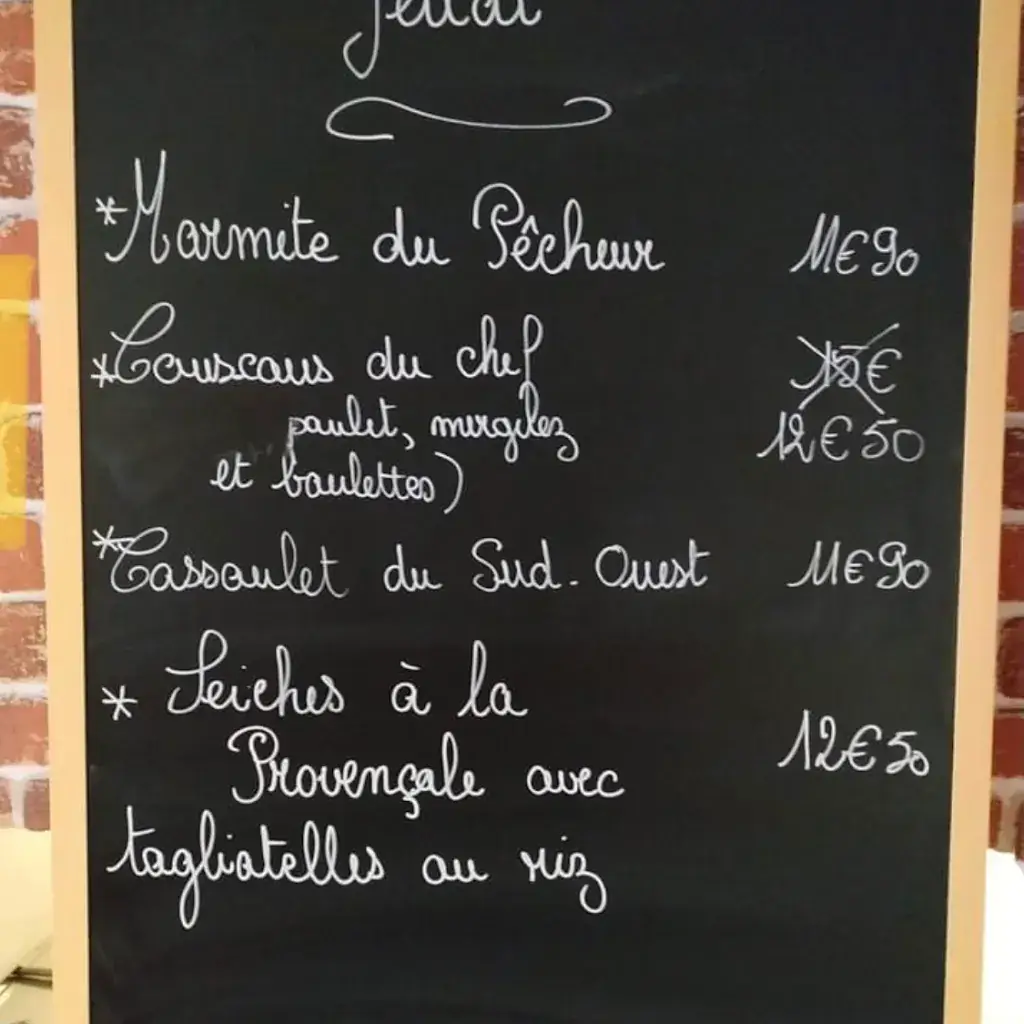 Jeudi
*Marmite du Pêcheur 11€90
*Couscous du chef 15€
poulet, merguez 12€50
et boulettes)
*Cassoulet du Sud-Ouest 11€90
* Seiches à la
Provençale avec 12€50
tagliatelles ou riz